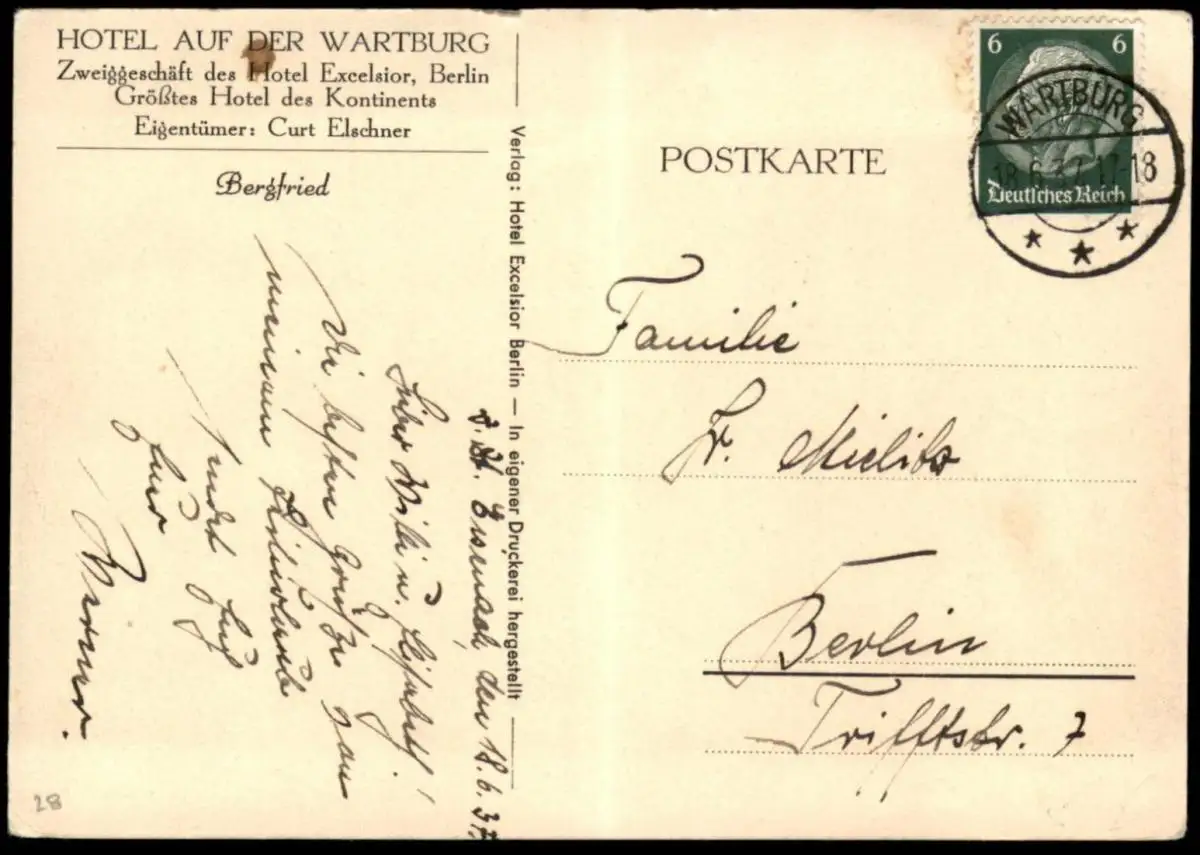 HOTEL AUF DER WARTBURG
Zweiggeschäft des Hotel Excelsior, Berlin
Größtes Hotel des Kontinents
Eigentümer: Curt Elschner
Bergfried
z. Zt. Eisenach, den 18.6.37
Lieber Willi u. !
Die besten Grüße von
meinem
sendet Euch
Euer
Werner.
Verlag: Hotel Excelsior Berlin — In eigener Druckerei hergestellt
POSTKARTE
6 6
Deutsches Reich
WARTBURG
18.6.37.17-18
Familie
Fr. Mielitz
Berlin
Triftstr. 7
28